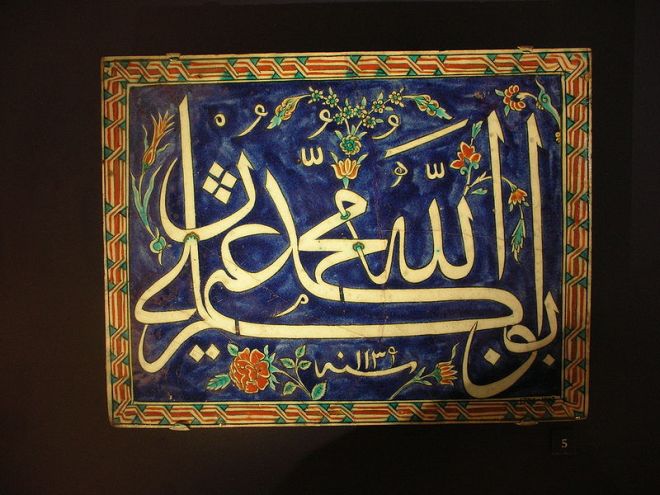 الله محمد
ابو بكر عمر عثمان على
سنه ١١٣٩
5